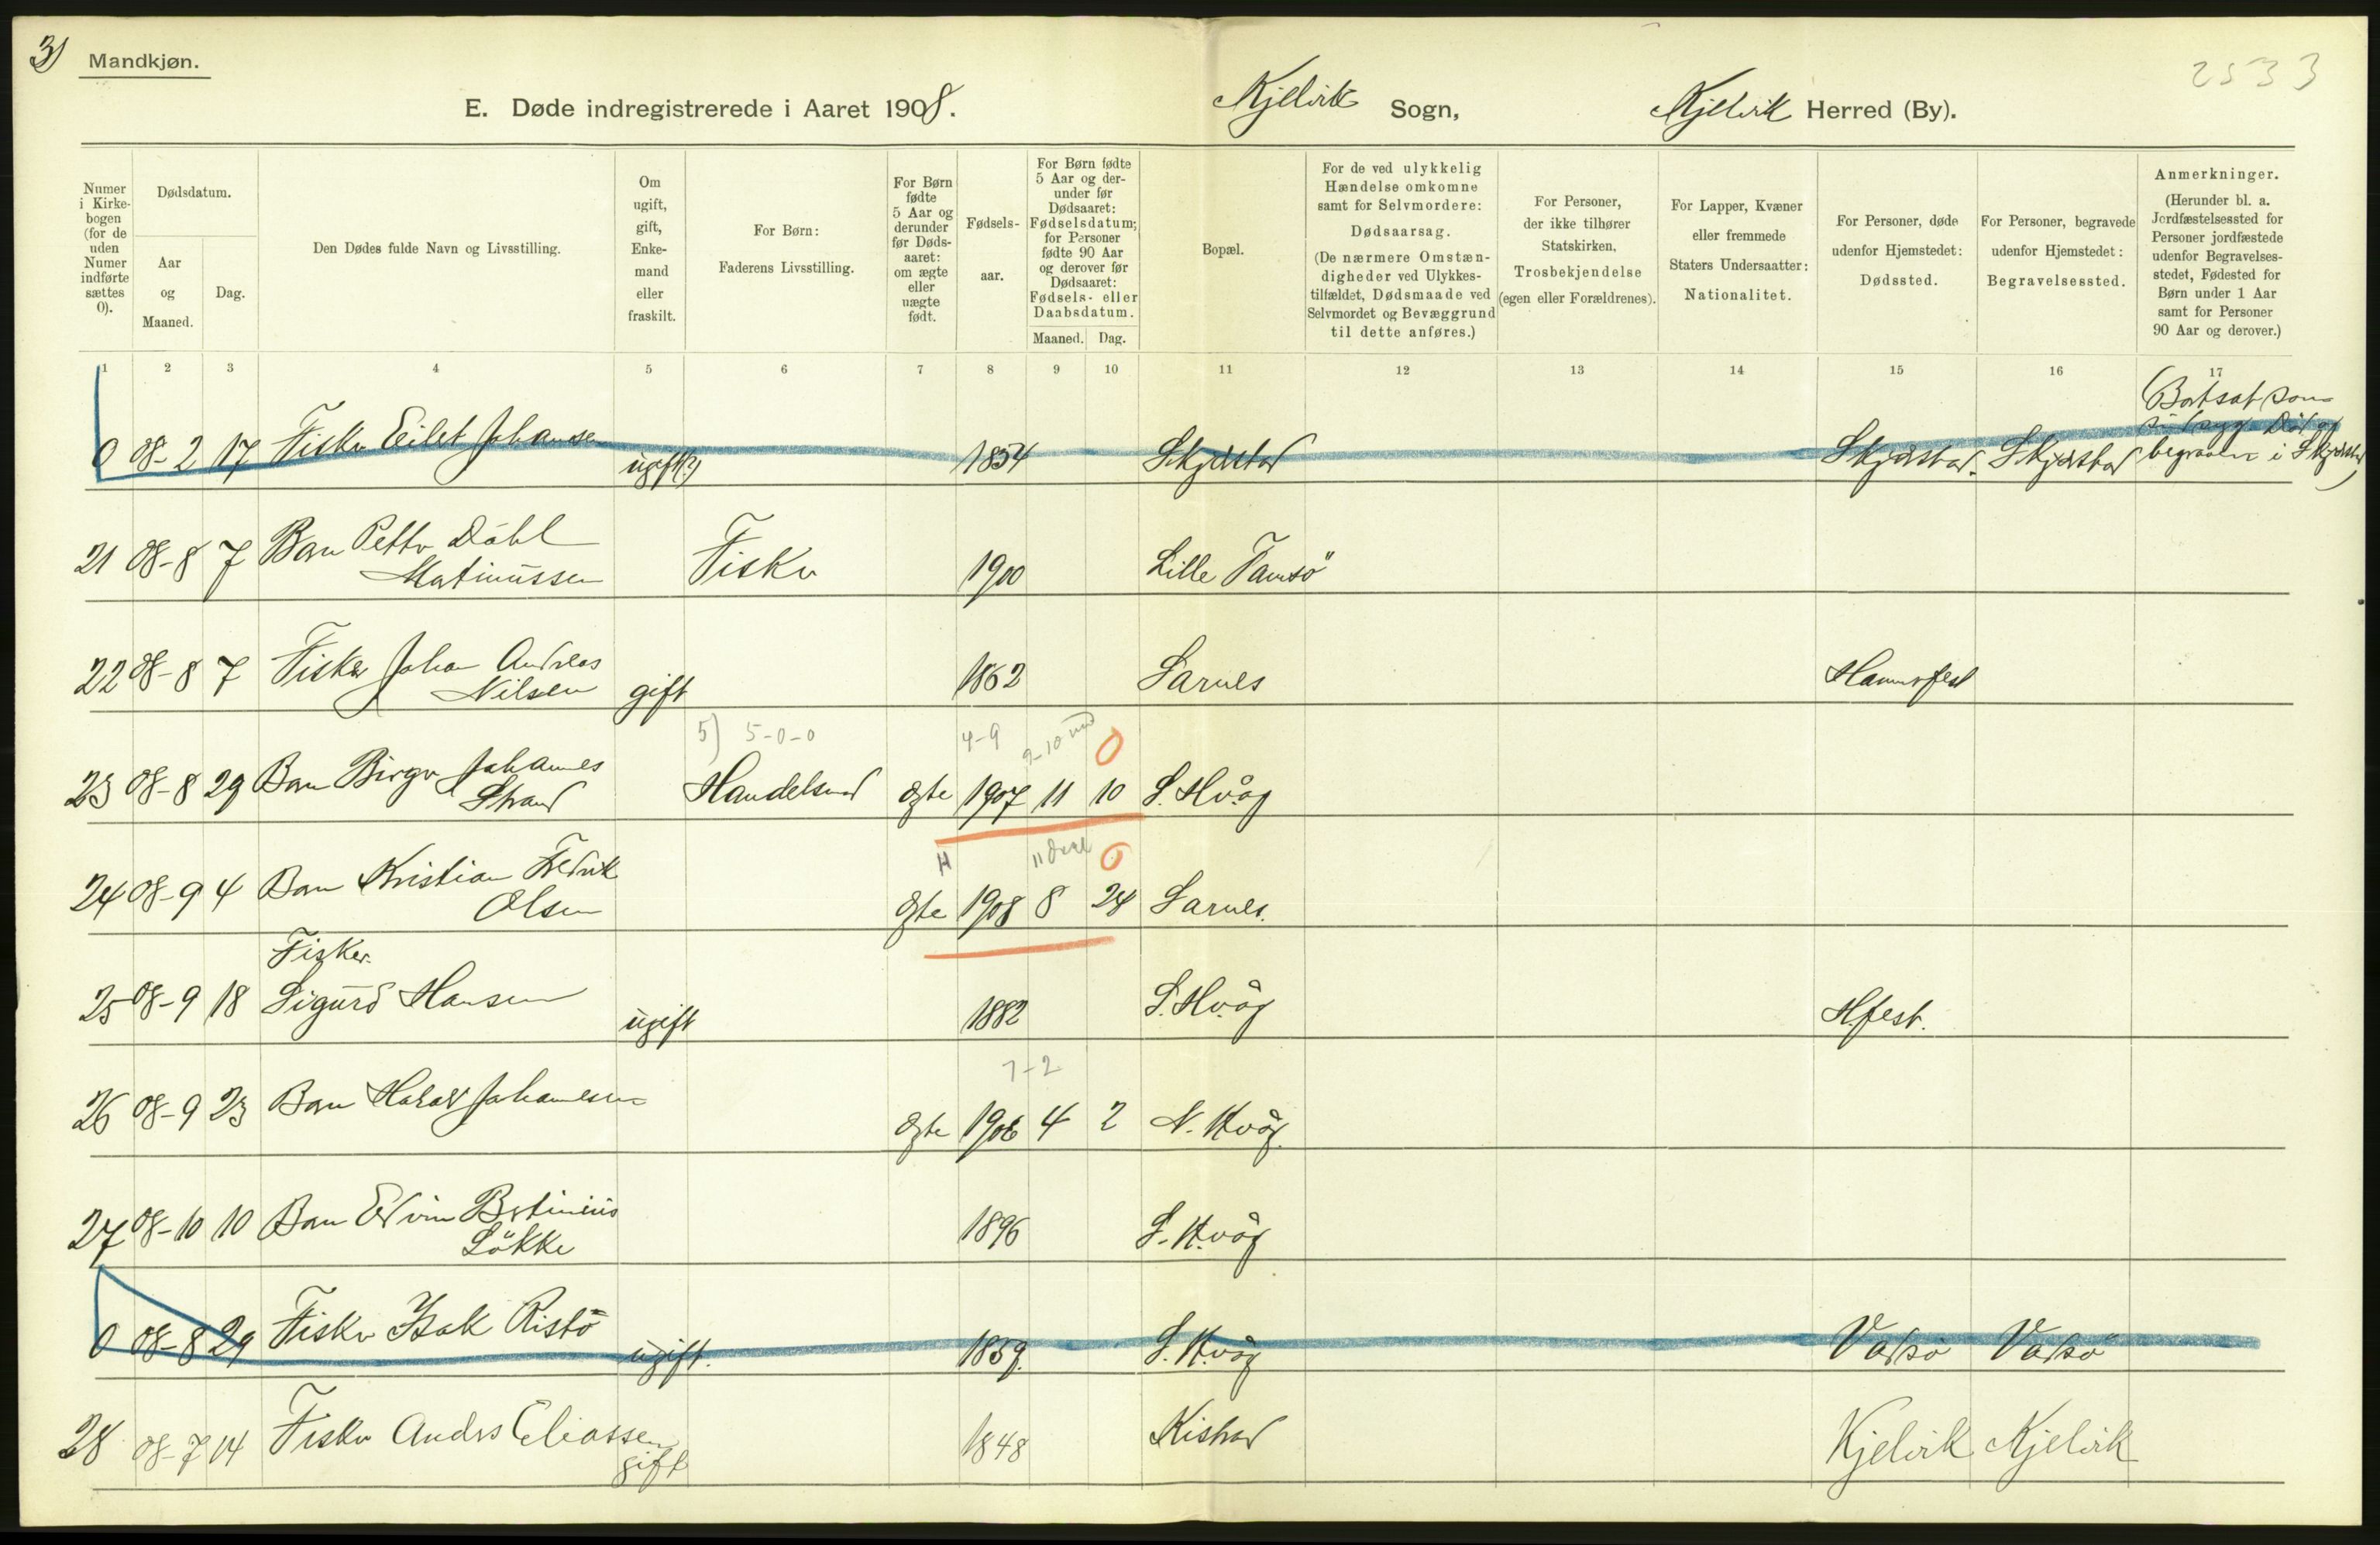 3)
Mandkjøn.
2533
E. Døde indregistrerede i Aaret 1908.
Kjelvik Sogn,
Kjelvik Herred (By).
Numer i Kirkebogen (for de uden Numer indførte sættes 0).
Dødsdatum.
Aar og Maaned.
Dag.
Den Dødes fulde Navn og Livsstilling.
Om ugift, gift, Enkemand eller fraskilt.
For Børn: Faderens Livsstilling.
For Børn fødte 5 Aar og derunder før Dødsaaret: om ægte eller uægte født.
Fødselsaar.
For Børn fødte 5 Aar og derunder før Dødsaaret: Fødselsdatum; for Personer fødte 90 Aar og derover før Dødsaaret: Fødsels- eller Daabsdatum.
Maaned. Dag.
Bopæl.
For de ved ulykkelig Hændelse omkomne samt for Selvmordere: Dødsaarsag. (De nærmere Omstændigheder ved Ulykkestilfældet, Dødsmaade ved Selvmordet og Bevæggrund til dette anføres.)
For Personer, der ikke tilhører Statskirken, Trosbekjendelse (egen eller Forældrenes).
For Lapper, Kvæner eller fremmede Staters Undersaatter: Nationalitet.
For Personer, døde udenfor Hjemstedet: Dødssted.
For Personer, begravede udenfor Hjemstedet: Begravelsessted.
Anmerkninger. (Herunder bl. a. Jordfæstelsessted for Personer jordfæstede udenfor Begravelsesstedet, Fødested for Børn under 1 Aar samt for Personer 90 Aar og derover.)
1 2 3 4 5 6 7 8 9 10 11 12 13 14 15 16 17
0 08-2 17 Fisker Eilert Johansen ugift(?) 1854 Skjerstad Skjerstad. Skjerstad (Bortsat som sindssyg. Død og begravln i Skjerstad)
21 08-8 7 Barn Petter Dåhl Matinussen Fisker 1900 Lille Tamsö
22 08-8 7 Fisker Johan Andreas Nilsen gift 1862 Sarnes Hammerfest
5) 5-0-0 4-9 0
23 08-8 29 Barn Birger Johannes Strand Handelsmd ægte 1907 11 10 S. Hvåg
H 0
24 08-9 4 Barn Kristian Fredrik Olsen ægte 1908 8 24 Sarnes.
25 08-9 18 Fisker Sigurd Hansen ugift 1882 S. Hvåg H.fest.
7-2
26 08-9 23 Barn Harald Johannesen ægte 1906 4 2 N. Hvåg.
27 08-10 10 Barn Edvin Bertinius Løkke 1896 S. Hvåg
0 08-8 29 Fisker Isak Ristö ugift. 1859. S. Hvåg Vadsö Vadsö
28 08-7 14 Fisker Anders Eliassen gift 1848 Kistrad Kjelvik Kjelvik